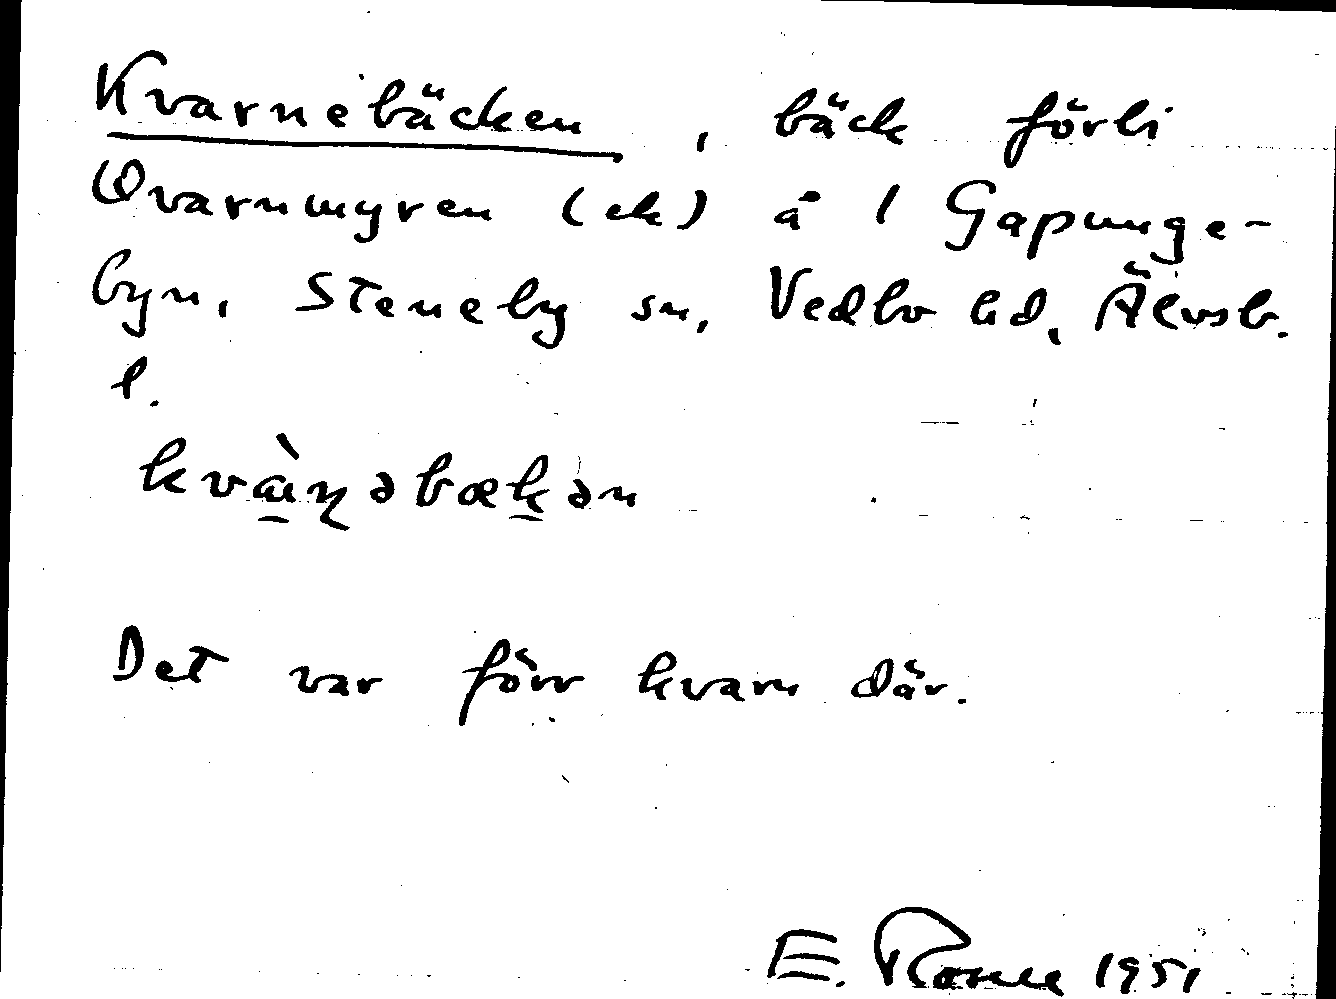 Kvarnebäcken, bäck förbi
Qvarnmyren (ek) å 1 Gapunge-
byn, Steneby sn, Vedbo hd, Älvsb.
l.
kvàɳəbækən
Det var förr kvarn där.
E. 1951